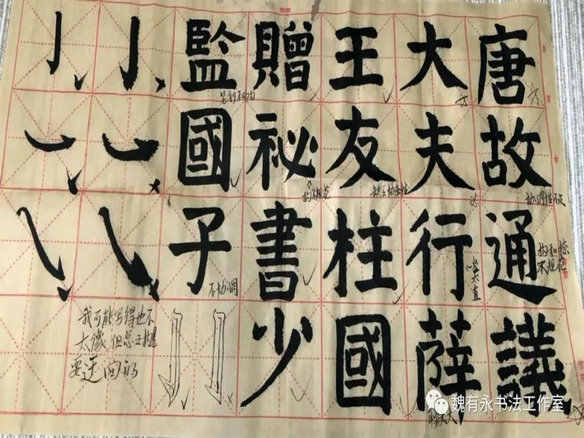 唐故通議
大夫行薛
王友柱國
贈祕書少
監國子
不协调
我可能写得也不
大像 但总之
要逆回的
魏有永书法工作室